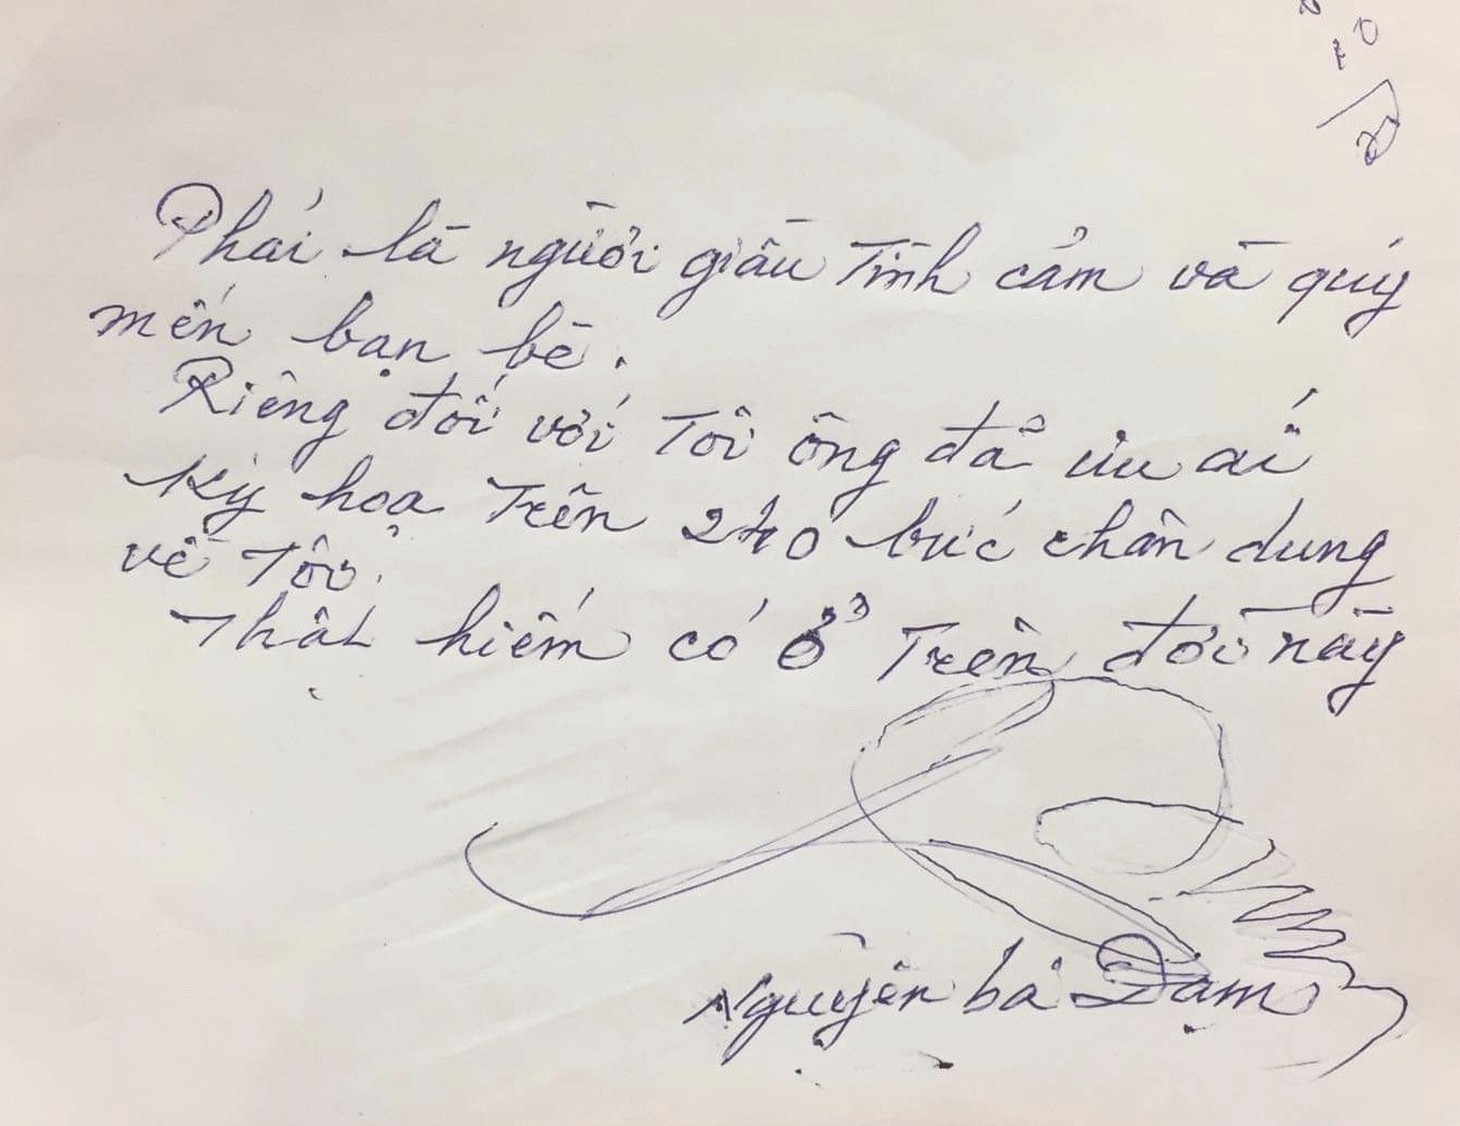 Phái là người giầu tình cảm và quý
mến bạn bè.
Riêng đối với tôi ông đã ưu ái
Ký hoạ trên 240 bức chân dung
về tôi.
Thật hiếm có ở trên đời này
Nguyễn bá Đạm